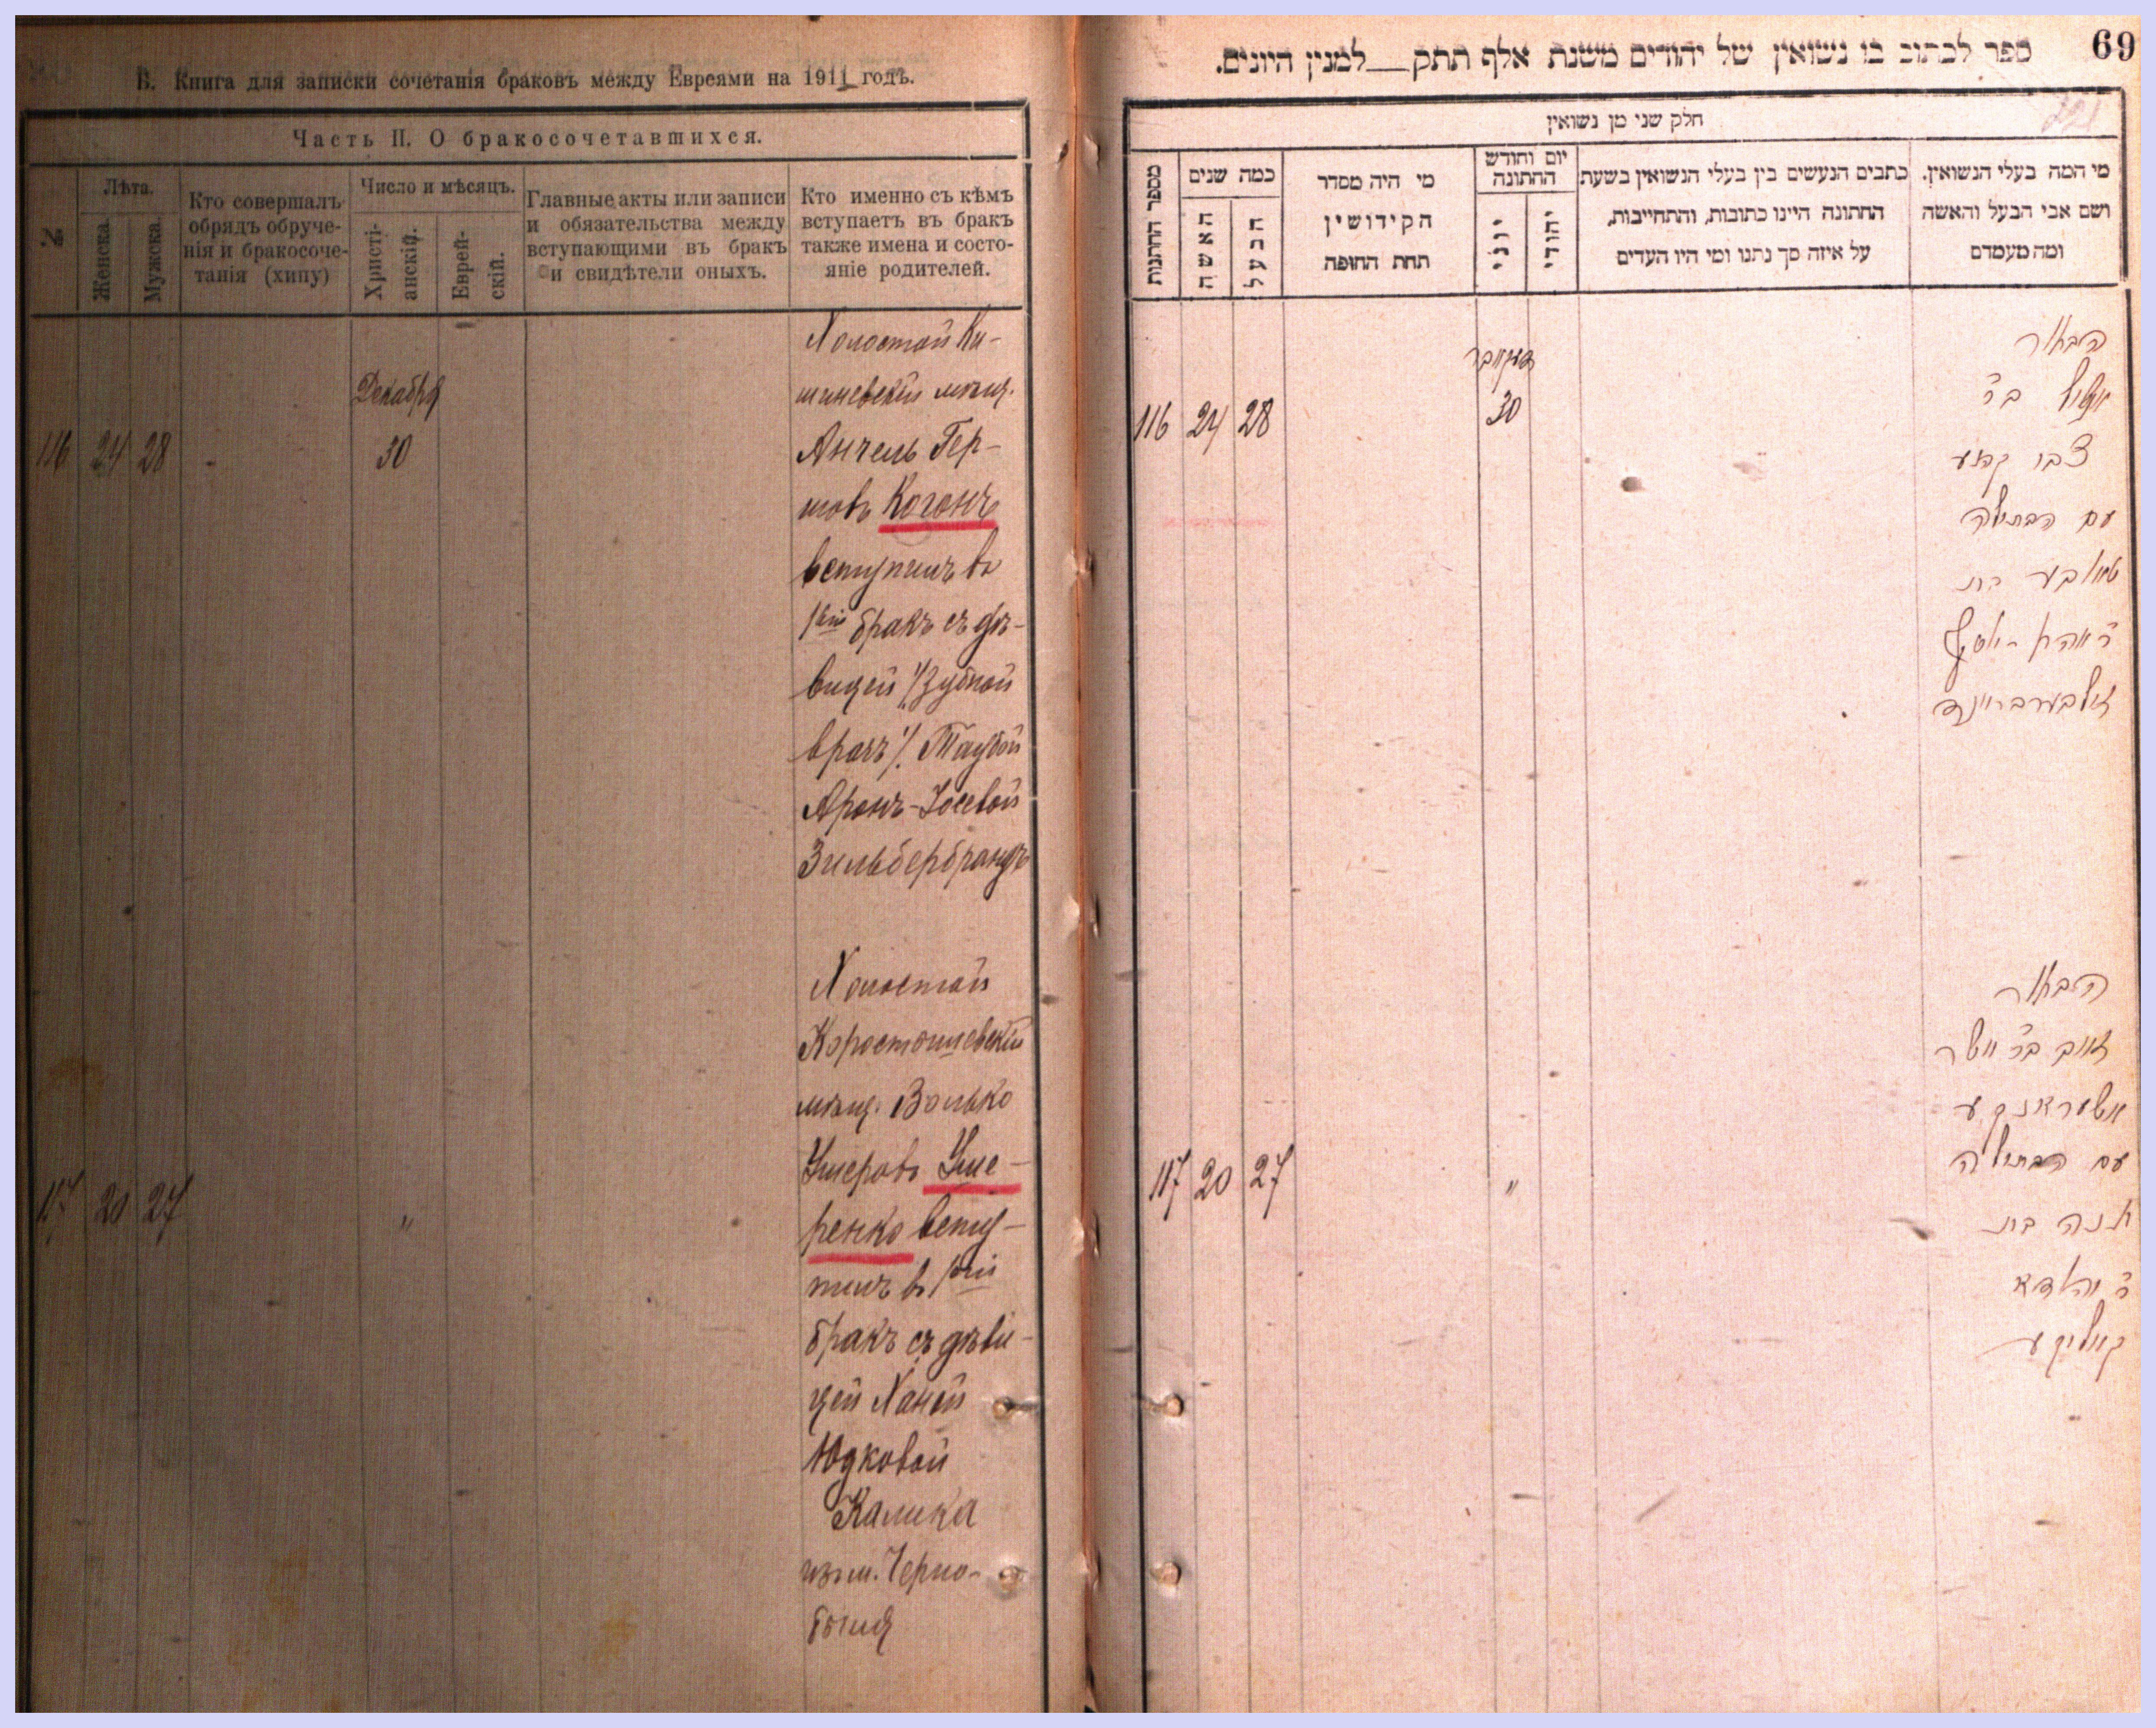 В. Книга для записки сочетанія браковъ между Евреями на 1911 годъ.
Часть II. О бракосочетавшихся.
№
Лѣта.
Женска.
Мужска.
Кто совершалъ
обрядъ обруче-
нія и бракосоче-
танія (хипу)
Число и мѣсяцъ.
Христі-
анскій.
Еврей-
скій.
Главные акты или записи
и обязательства между
вступающими въ бракъ
и свидѣтели оныхъ.
Кто именно съ кѣмъ
вступаетъ въ бракъ
также имена и состо-
яніе родителей.
Декабря
116 24 28 30
Холостой Ки-
шиневскій мѣщ.
Анчель Гер-
шовъ Когонъ
вступилъ въ
1ый бракъ съ дѣ-
вицей /Зубной
врачъ/. Таубой
Аронъ-Іосевой
Зильбербрандъ
117 20 27 "
Холостой
Коростышевскій
мѣщ. Волько
Ушеровъ Уше-
ренко всту-
пилъ въ 1ый
бракъ съ дѣви-
цей Ханой
Юдковой
Калика
изъ м. Черно-
быля
69
ספר לכתוב בו נשואין של יהודים משנת אלף תתק__למנין היונים.
חלק שני מן נשואין
מספר החתנות
כמה שנים
האשה
הבעל
מי היה מסדר
הקידושין
תחת החופה
יום וחודש
החתונה
יווני
יהודי
כתבים הנעשים בין בעלי הנשואין בשעת
החתונה היינו כתובות, והתחייבות,
על איזה סך נתנו ומי היו העדים
מי המה בעלי הנשואין.
ושם אבי הבעל והאשה
ומה מעמדם
דעקאבר
116 24 28 30
הבחור
בר
צבי
עם הבתולה
טויבע בת
ר אהרן יוסף
זילבערבראנד
117 20 27 "
הבחור
זאב בר אשר
אשערענקע
עם הבתולה
חנה בת
ר יהודא
קאליקע